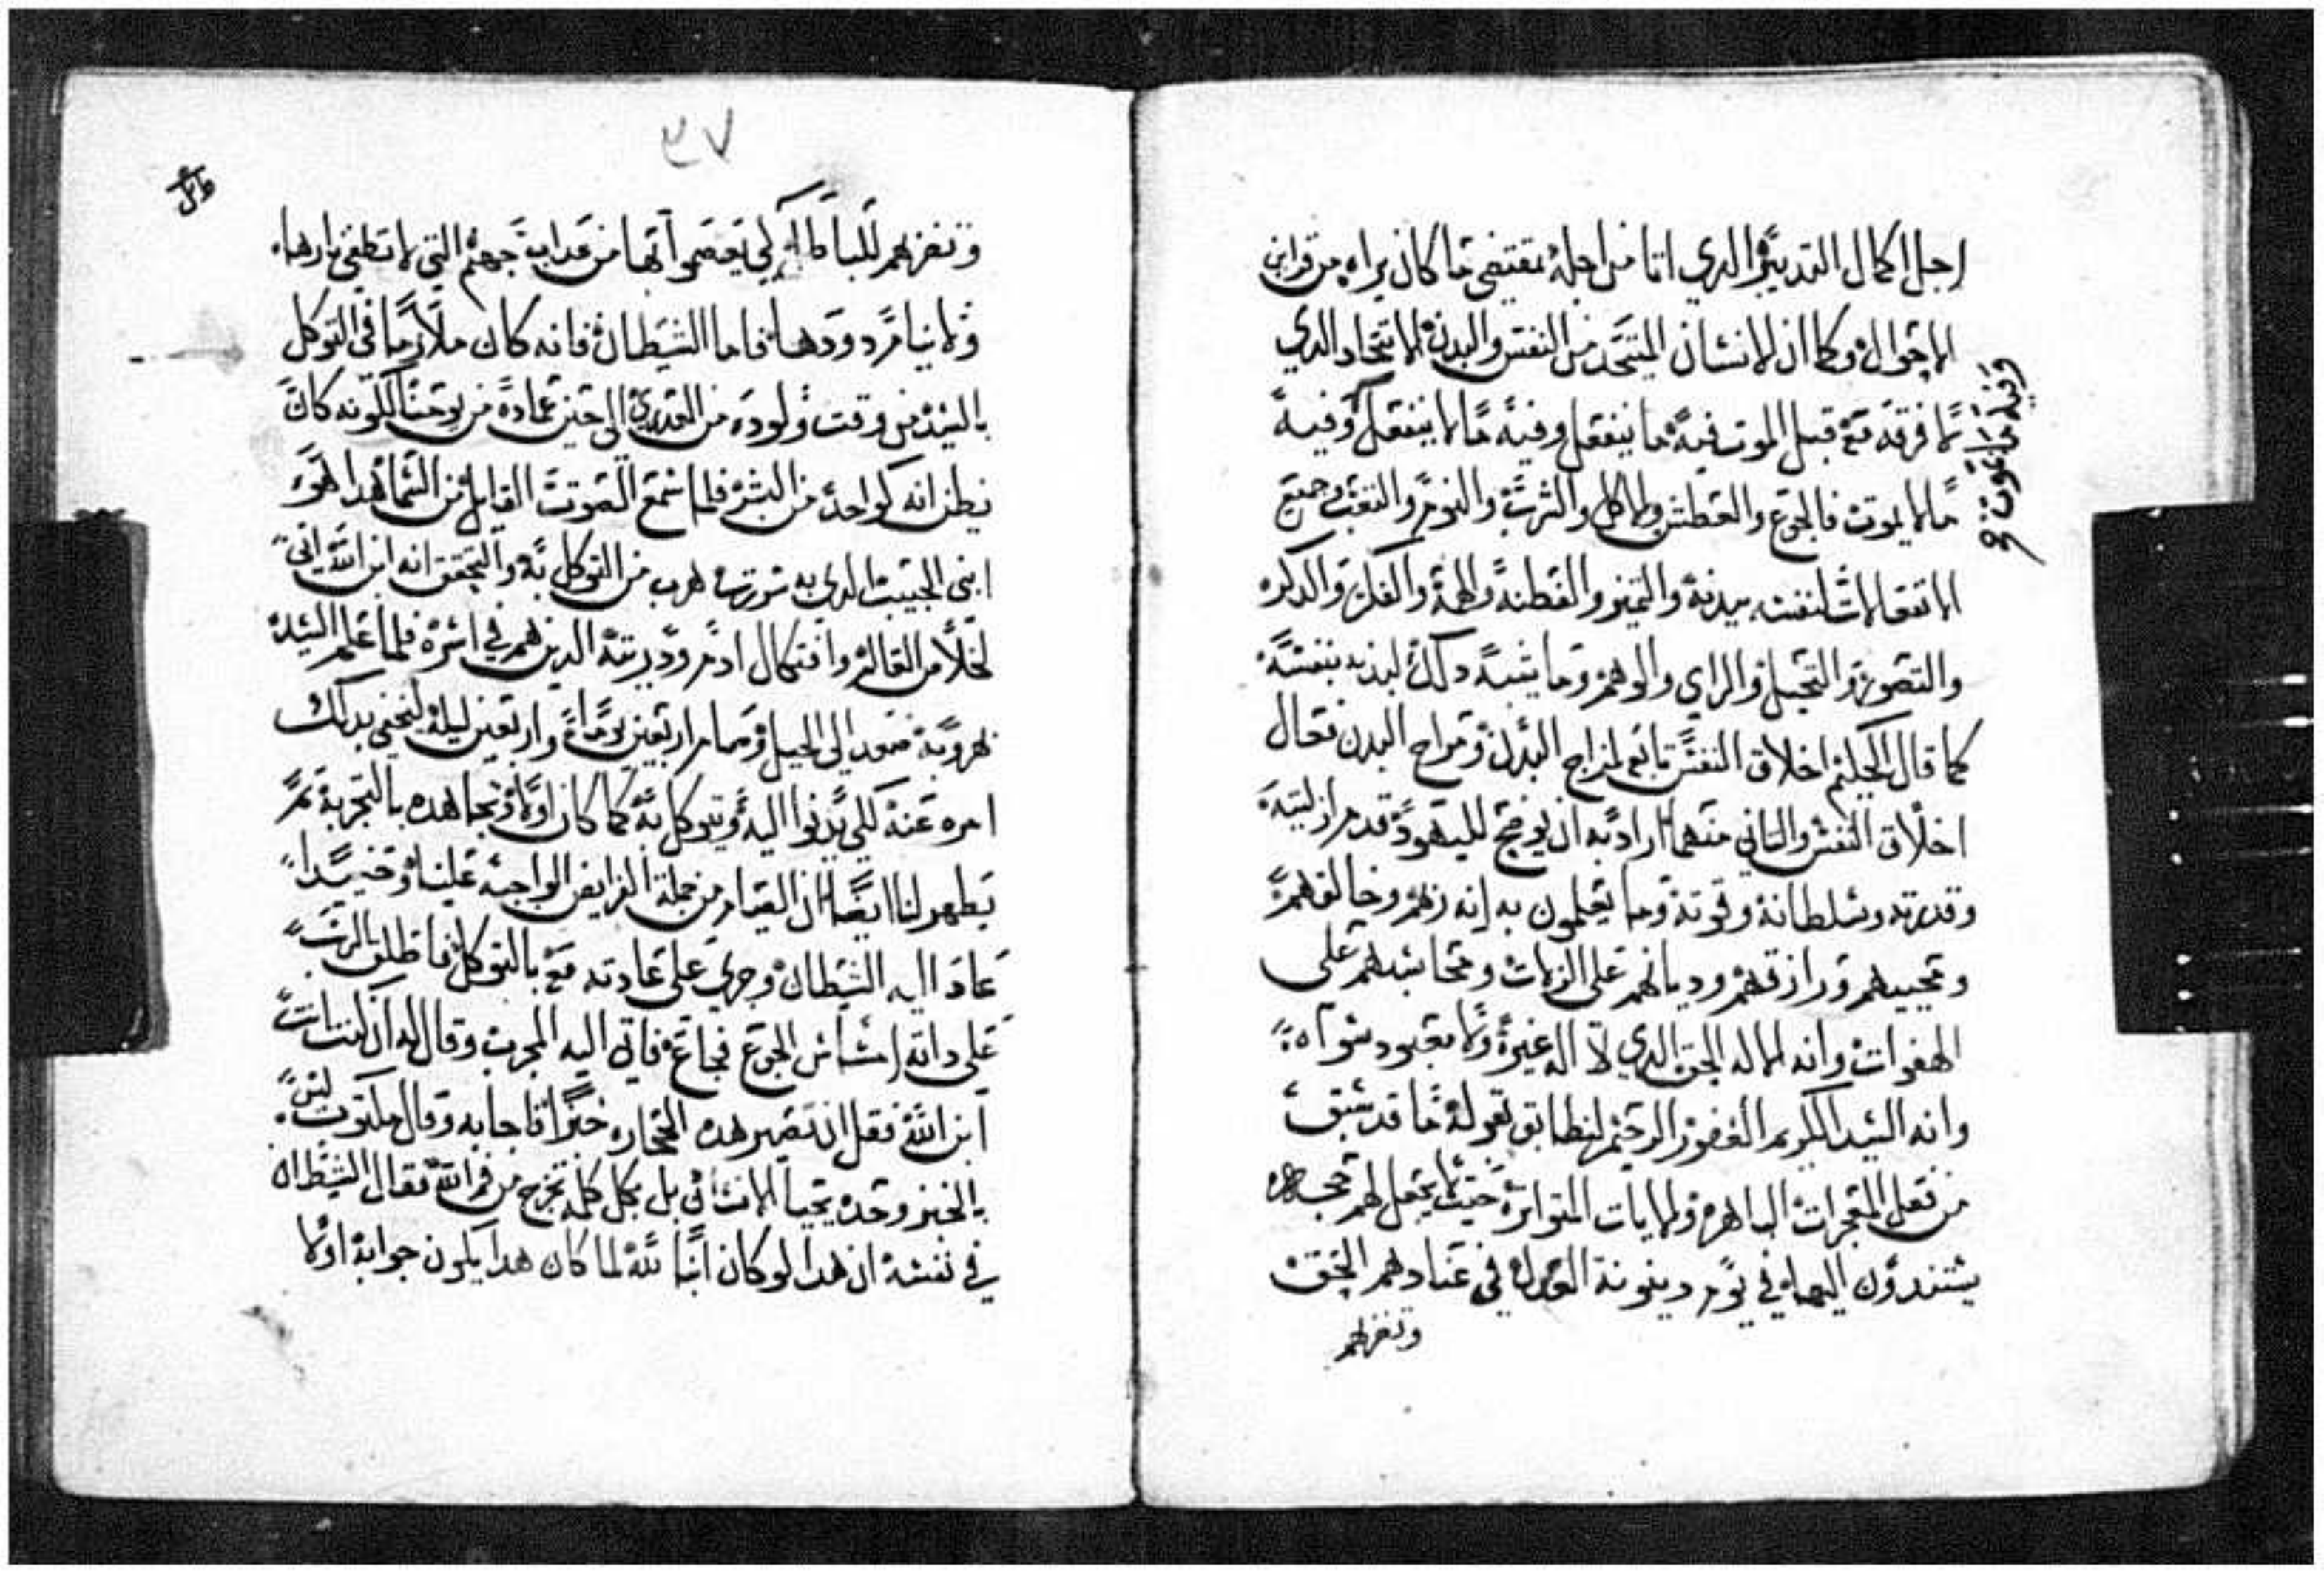 اجل اكمال التدبير الدي اتا من اجله بمقتضي ما كان يراه من قراين
الاحوال وكما ان الانسان المتحد من النفس والبدن الاتحاد الدي
لا فرقه معه قبل الموت فيه ما ينفعل وفيه ما لا ينفعل وفيه
وفيه ما يموت
ما لا يموت فالجوع والعطش والاكل والشرب والنوم والتعب وجميع
الانفعالات لنفسه ببدنه والتميز والفطنه والهمة والفكر والدكر
والتصور والتخيل والراي والوهم وما يشبه دلك لبدنه بنفسه
كما قال الحكيم اخلاق النفس تابعه لمزاج البدن ومزاج البدن فعال
اخلاق النفس والتاني منهما اراد به ان يوضح لليهود قدم ازليته
وقدرته وسلطانه وقوته وما يعلمون به انه ربهم وخالقهم
ومحييهم ورازقهم وديانهم على الزلات ومحاسبهم على
الهفوات وانه الاله الحق الدي لا اله غيره ولا معبود سواه
وانه السيد الكريم الغفور الرحيم ليطابق بقوله ما قد سبق
من فعل المعجزات الباهره والايات المتواتره حيث لا يجعل لهم حجه
يستندون اليها في يوم دينونة العدل في عنادهم الحق
وتفزهم
٣٧
وتفزهم للباطل كي يعصموا بها من عداب جهنم التي لا تطفي نارها
ولا ينام دودها فاما الشيطان فانه كان ملازما في التوكل
بالسيد من وقت ولوده من العدري الى حين عماده من يوحنا لكونه كان
يظن انه كواحد من البشر فلما سمع الصوت القايل من السما هدا هو
ابني الحبيب الدي به سررت هرب من التوكل به والتحقق انه ابن الله اتى
لخلاص العالم وافتكاك ادم ودريته الدين هم في اسره فلما علم السيد
هروبه صعد الى الجبل وصام اربعين يوما واربعين ليلة ليخفي بدلك
امره عنه لكي يدنوا اليه ويتوكل به كما كان اولا ويجاهده بالتجربة ثم
يظهر لنا ايضا ان الصيام من جملة الفرايض الواجبه علينا وحينيدا
عاد اليه الشيطان وجري على عادته معه بالتوكل فاطلق الرب
على داته احساس الجوع فجاع فاتى اليه المجرب وقال له ان كنت انت
ابن الله فقل ان تصير هده الحجاره خبزا فاجابه وقال مكتوب ليس
بالخبز وحده يحيا الانسان بل بكل كلمه تخرج من فم الله فقال الشيطان
في نفسه ان هدا لو كان ابنا لله لما كان هدا يكون جوابه اولا